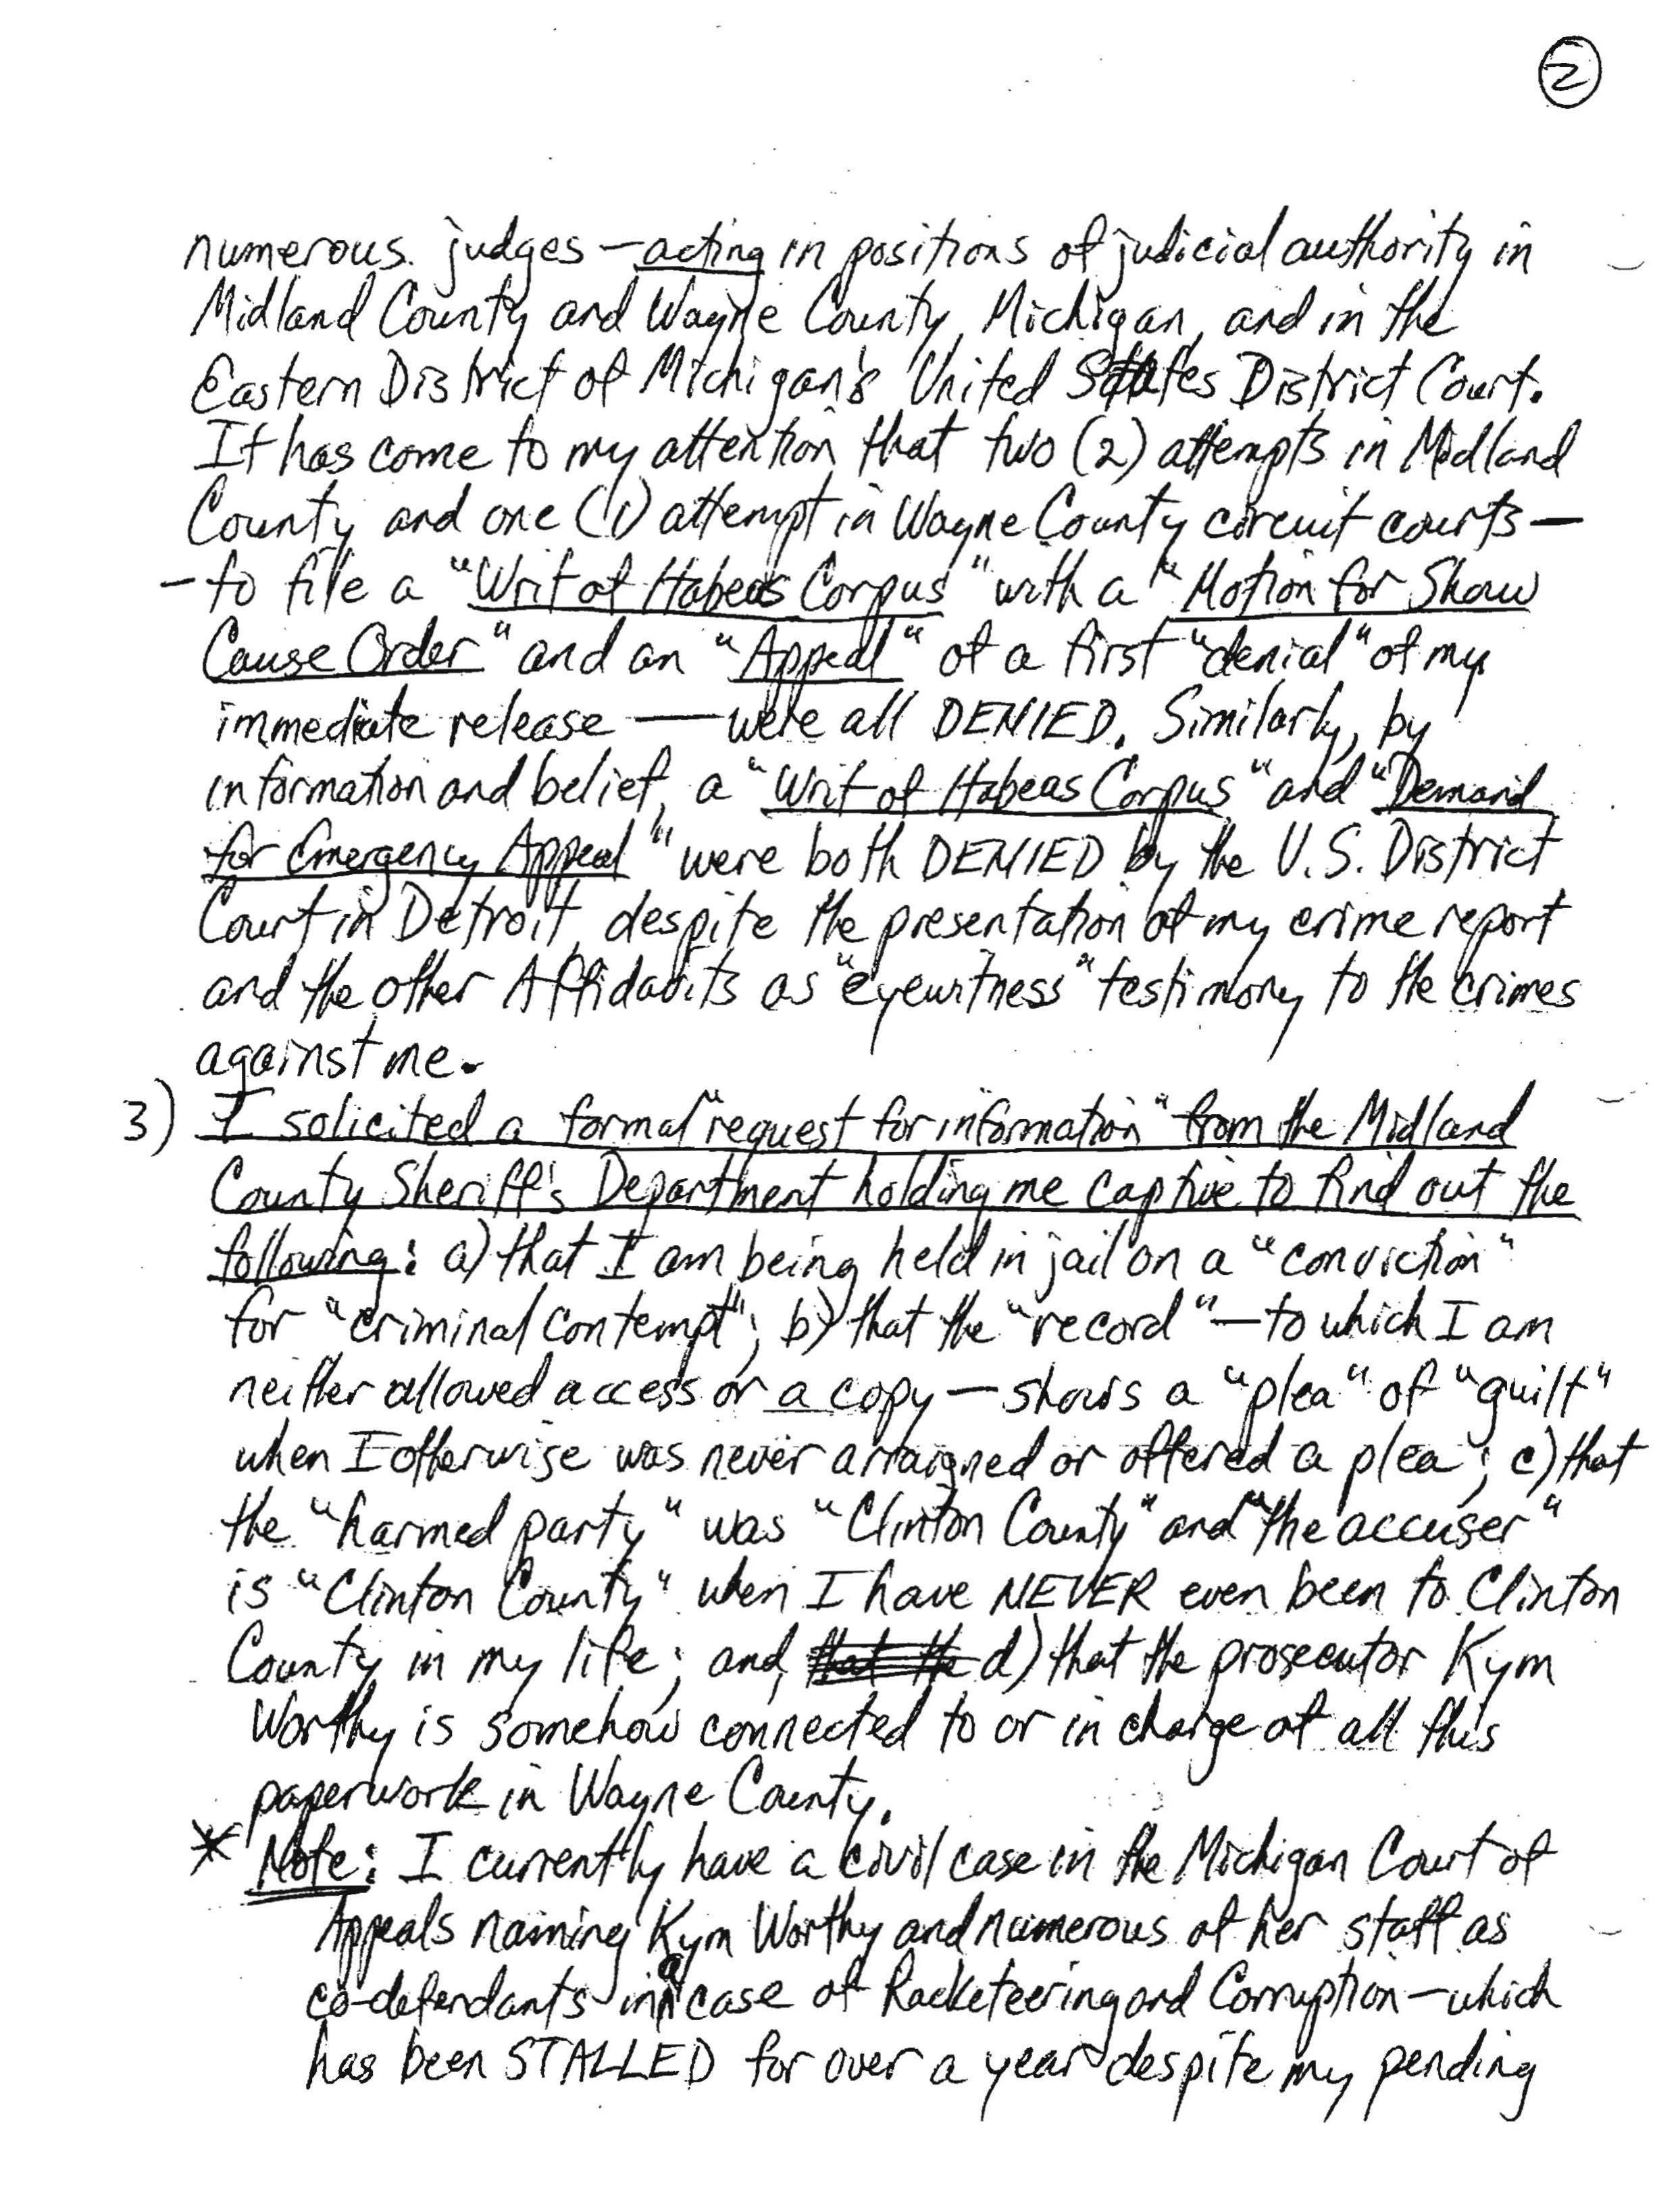 2
numerous judges – acting in positions of judicial authority in
Midland County and Wayne County, Michigan, and in the
Eastern District of Michigan's United States District Court.
It has come to my attention that two (2) attempts in Midland
County and one (1) attempt in Wayne County circuit courts —
– to file a "Writ of Habeas Corpus" with a "Motion for Show
Cause Order" and an "Appeal" of a first "denial" of my
immediate release — were all DENIED. Similarly, by
information and belief, a "Writ of Habeas Corpus" and "Demand
for Emergency Appeal" were both DENIED by the U.S. District
Court in Detroit, despite the presentation of my crime report
and the other Affidavits as "eyewitness" testimony to the crimes
against me.
3) I solicited a formal "request for information" from the Midland
County Sheriff's Department holding me captive to find out the
following: a) that I am being held in jail on a "conviction"
for "criminal contempt"; b) that the "record" — to which I am
neither allowed access or a copy — shows a "plea" of "guilt"
when I otherwise was never arraigned or offered a plea; c) that
the "harmed party" was "Clinton County" and "the accuser"
is "Clinton County" when I have NEVER even been to Clinton
County in my life; and, that the d) that the prosecutor Kym
Worthy is somehow connected to or in charge of all this
paperwork in Wayne County.
* Note: I currently have a civil case in the Michigan Court of
Appeals naming Kym Worthy and numerous of her staff as
co-defendants in a case of Racketeering and Corruption – which
has been STALLED for over a year despite my pending